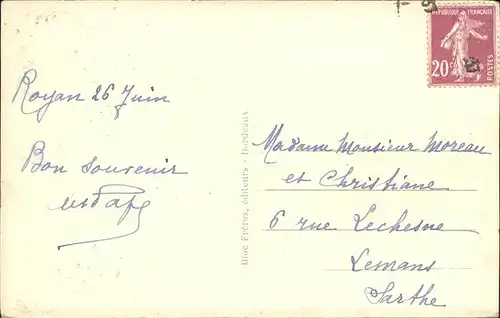 RÉPUBLIQUE FRANÇAISE
20c
POSTES
Royan 26 Juin
Bon souvenir
Bloc Frères, éditeurs - Bordeaux
Madame Monsieur Moreau
et Christiane
6 rue Lechesne
Lemans
Sarthe